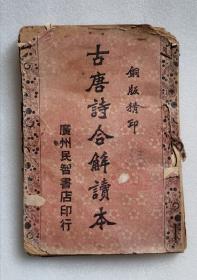 銅版精印
古唐詩合解讀本
廣州民智書店印行